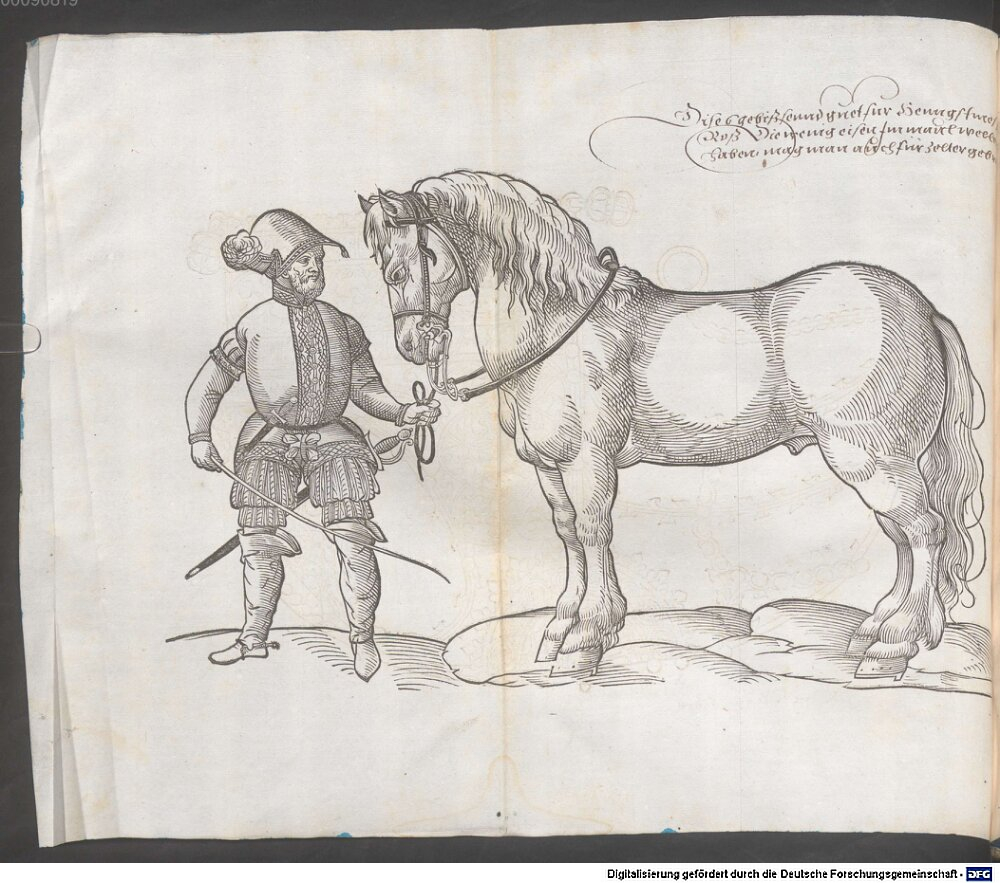 00090819
Dise Gebiß sennd guet für
Roß Die wenig eisen Im maul
haben. mag man auch für Zelter
Digitalisierung gefördert durch die Deutsche Forschungsgemeinschaft - DFG